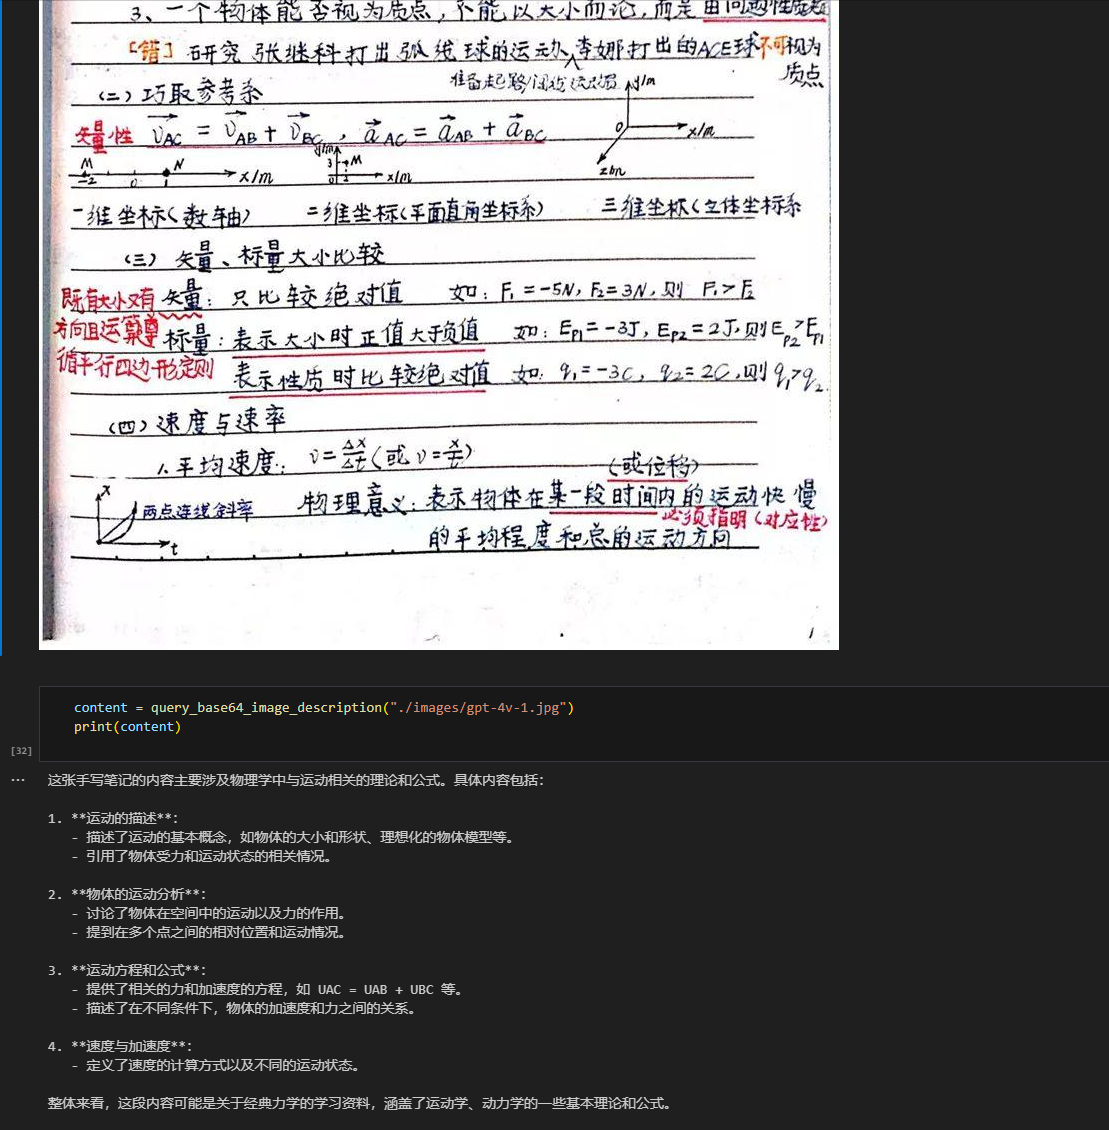 3、一个物体能否视为质点,不能以大小而论,而是由问题性质
[错] 研究张继科打出弧线球的运动、李娜打出的ACE球不可视为
质点
准备起跑/
(二)巧取参考系
y/m
矢量性 v⃗AC = v⃗AB + v⃗BC, a⃗AC = a⃗AB + a⃗BC
0 x/m
M N y/m 3 M
-2 0 1 x/m 0 x/m
一维坐标(数轴) 二维坐标(平面直角坐标系) 三维坐标(立体坐标系
(三) 矢量、标量大小比较
既有大小又有 矢量: 只比较绝对值 如: F₁=-5N, F₂=3N, 则 F₁>F₂
方向且运算遵 标量: 表示大小时正值大于负值 如: EP1=-3J, EP2=2J, 则EP2>EP1
循平行四边形定则 表示性质时比较绝对值 如: q₁=-3C, q₂=2C, 则q₁>q₂
(四)速度与速率
1.平均速度: v=Δx/Δt(或v=x/t)
(或位移)
x 两点连线斜率 物理意义: 表示物体在某一段时间内的运动快慢
必须指明(对应性)
t 的平均程度和总的运动方向
1
content = query_base64_image_description("./images/gpt-4v-1.jpg")
print(content)
[32]
... 这张手写笔记的内容主要涉及物理学中与运动相关的理论和公式。具体内容包括:
1. **运动的描述**:
- 描述了运动的基本概念，如物体的大小和形状、理想化的物体模型等。
- 引用了物体受力和运动状态的相关情况。
2. **物体的运动分析**:
- 讨论了物体在空间中的运动以及力的作用。
- 提到在多个点之间的相对位置和运动情况。
3. **运动方程和公式**:
- 提供了相关的力和加速度的方程，如 UAC = UAB + UBC 等。
- 描述了在不同条件下，物体的加速度和力之间的关系。
4. **速度与加速度**:
- 定义了速度的计算方式以及不同的运动状态。
整体来看，这段内容可能是关于经典力学的学习资料，涵盖了运动学、动力学的一些基本理论和公式。